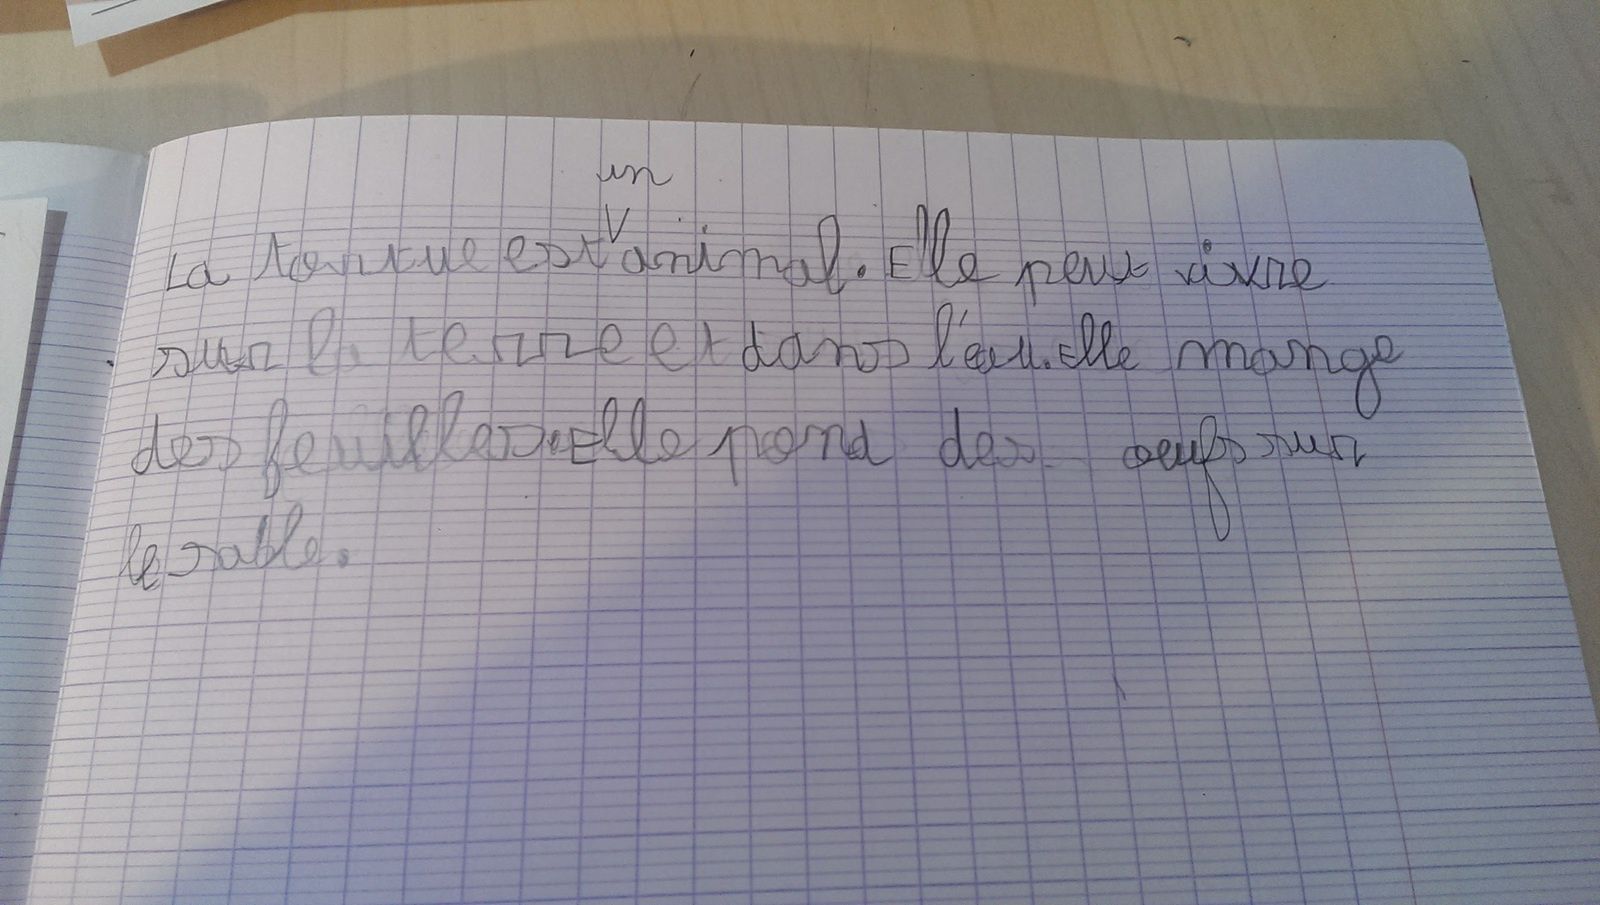 un
La tortue est V animal. Elle peut vivre
sur la terre et dans l'eau. Elle mange
des feuilles. Elle pond des oeufs sur
le sable.